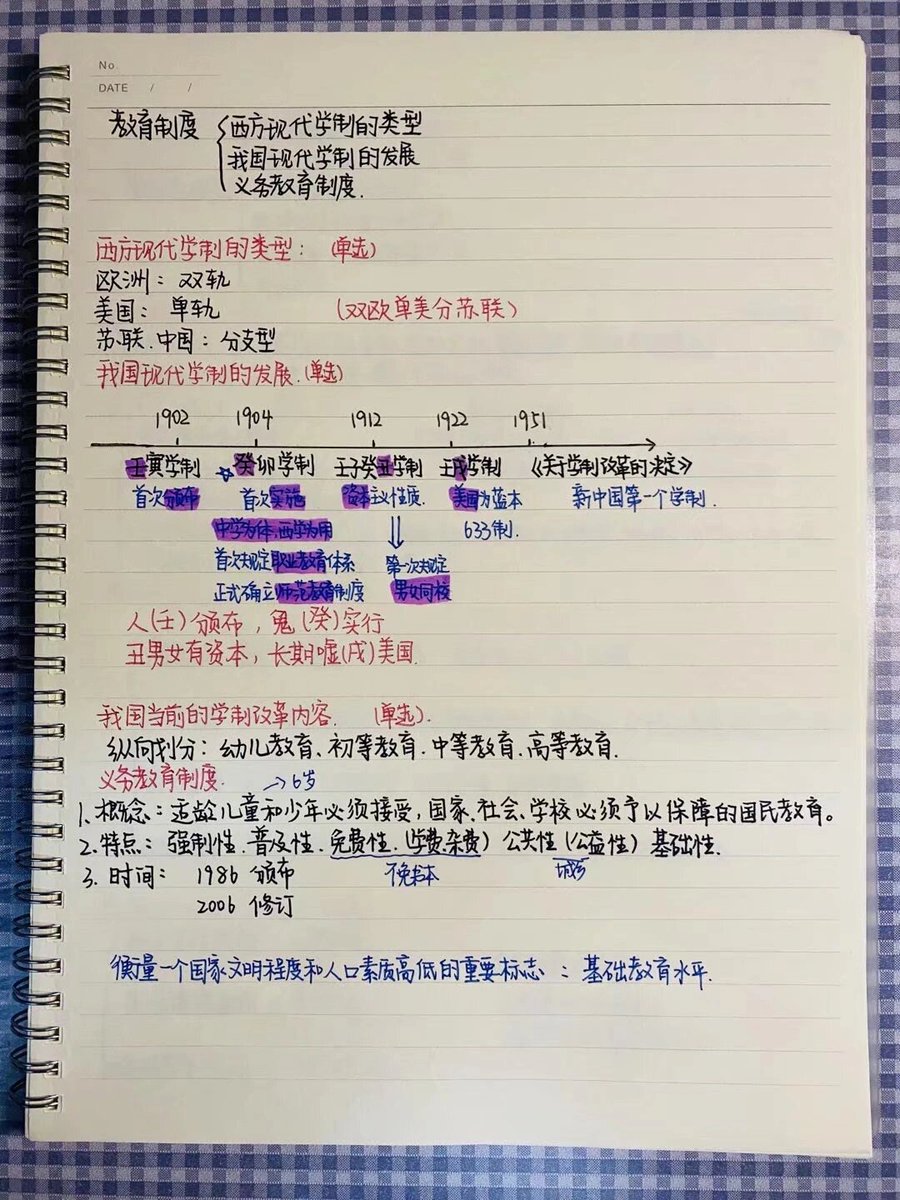 No
DATE / /
教育制度 { 西方现代学制的类型
我国现代学制的发展
义务教育制度.
西方现代学制的类型: (单选)
欧洲: 双轨
美国: 单轨 (双欧单美分苏联)
苏联.中国: 分支型
我国现代学制的发展.(单选)
1902 1904 1912 1922 1951
壬寅学制 ☆癸卯学制 壬子癸丑学制 壬戌学制 《关于学制改革的决定》
首次颁布 首次实施 资本主义性质. 美国为蓝本 新中国第一个学制.
中学为体,西学为用 ⇓ 633制.
首次规定职业教育体系 第一次规定
正式确立师范教育制度 男女同校
人(壬)颁布,鬼(癸)实行
丑男女有资本,长期嘘(戌)美国.
我国当前的学制改革内容. (单选).
纵向划分: 幼儿教育、初等教育.中等教育、高等教育.
义务教育制度. →6岁
1.概念:适龄儿童和少年必须接受,国家.社会、学校必须予以保障的国民教育。
2.特点: 强制性.普及性.免费性.(学费.杂费) 公共性(公益性) 基础性.
3.时间: 1986 颁布 不免书本 城乡
2006 修订
衡量一个国家文明程度和人口素质高低的重要标志:基础教育水平.